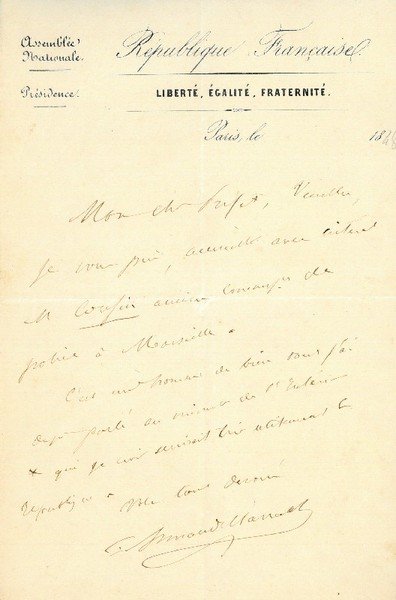 Assemblée
Nationale.
Présidence.
République Française.
LIBERTÉ, ÉGALITÉ, FRATERNITÉ.
Paris, le 1848
Mon cher Préfet, Veuillez,
je vous prie, accueillir avec intérêt
M Cousin ancien de
police à Marseille.
C'est un homme de bien dont j'ai
déjà parlé au ministre de l'Intérieur
& qui je crois servirait très utilement la
République.
Votre tout dévoué
Armand Marrast